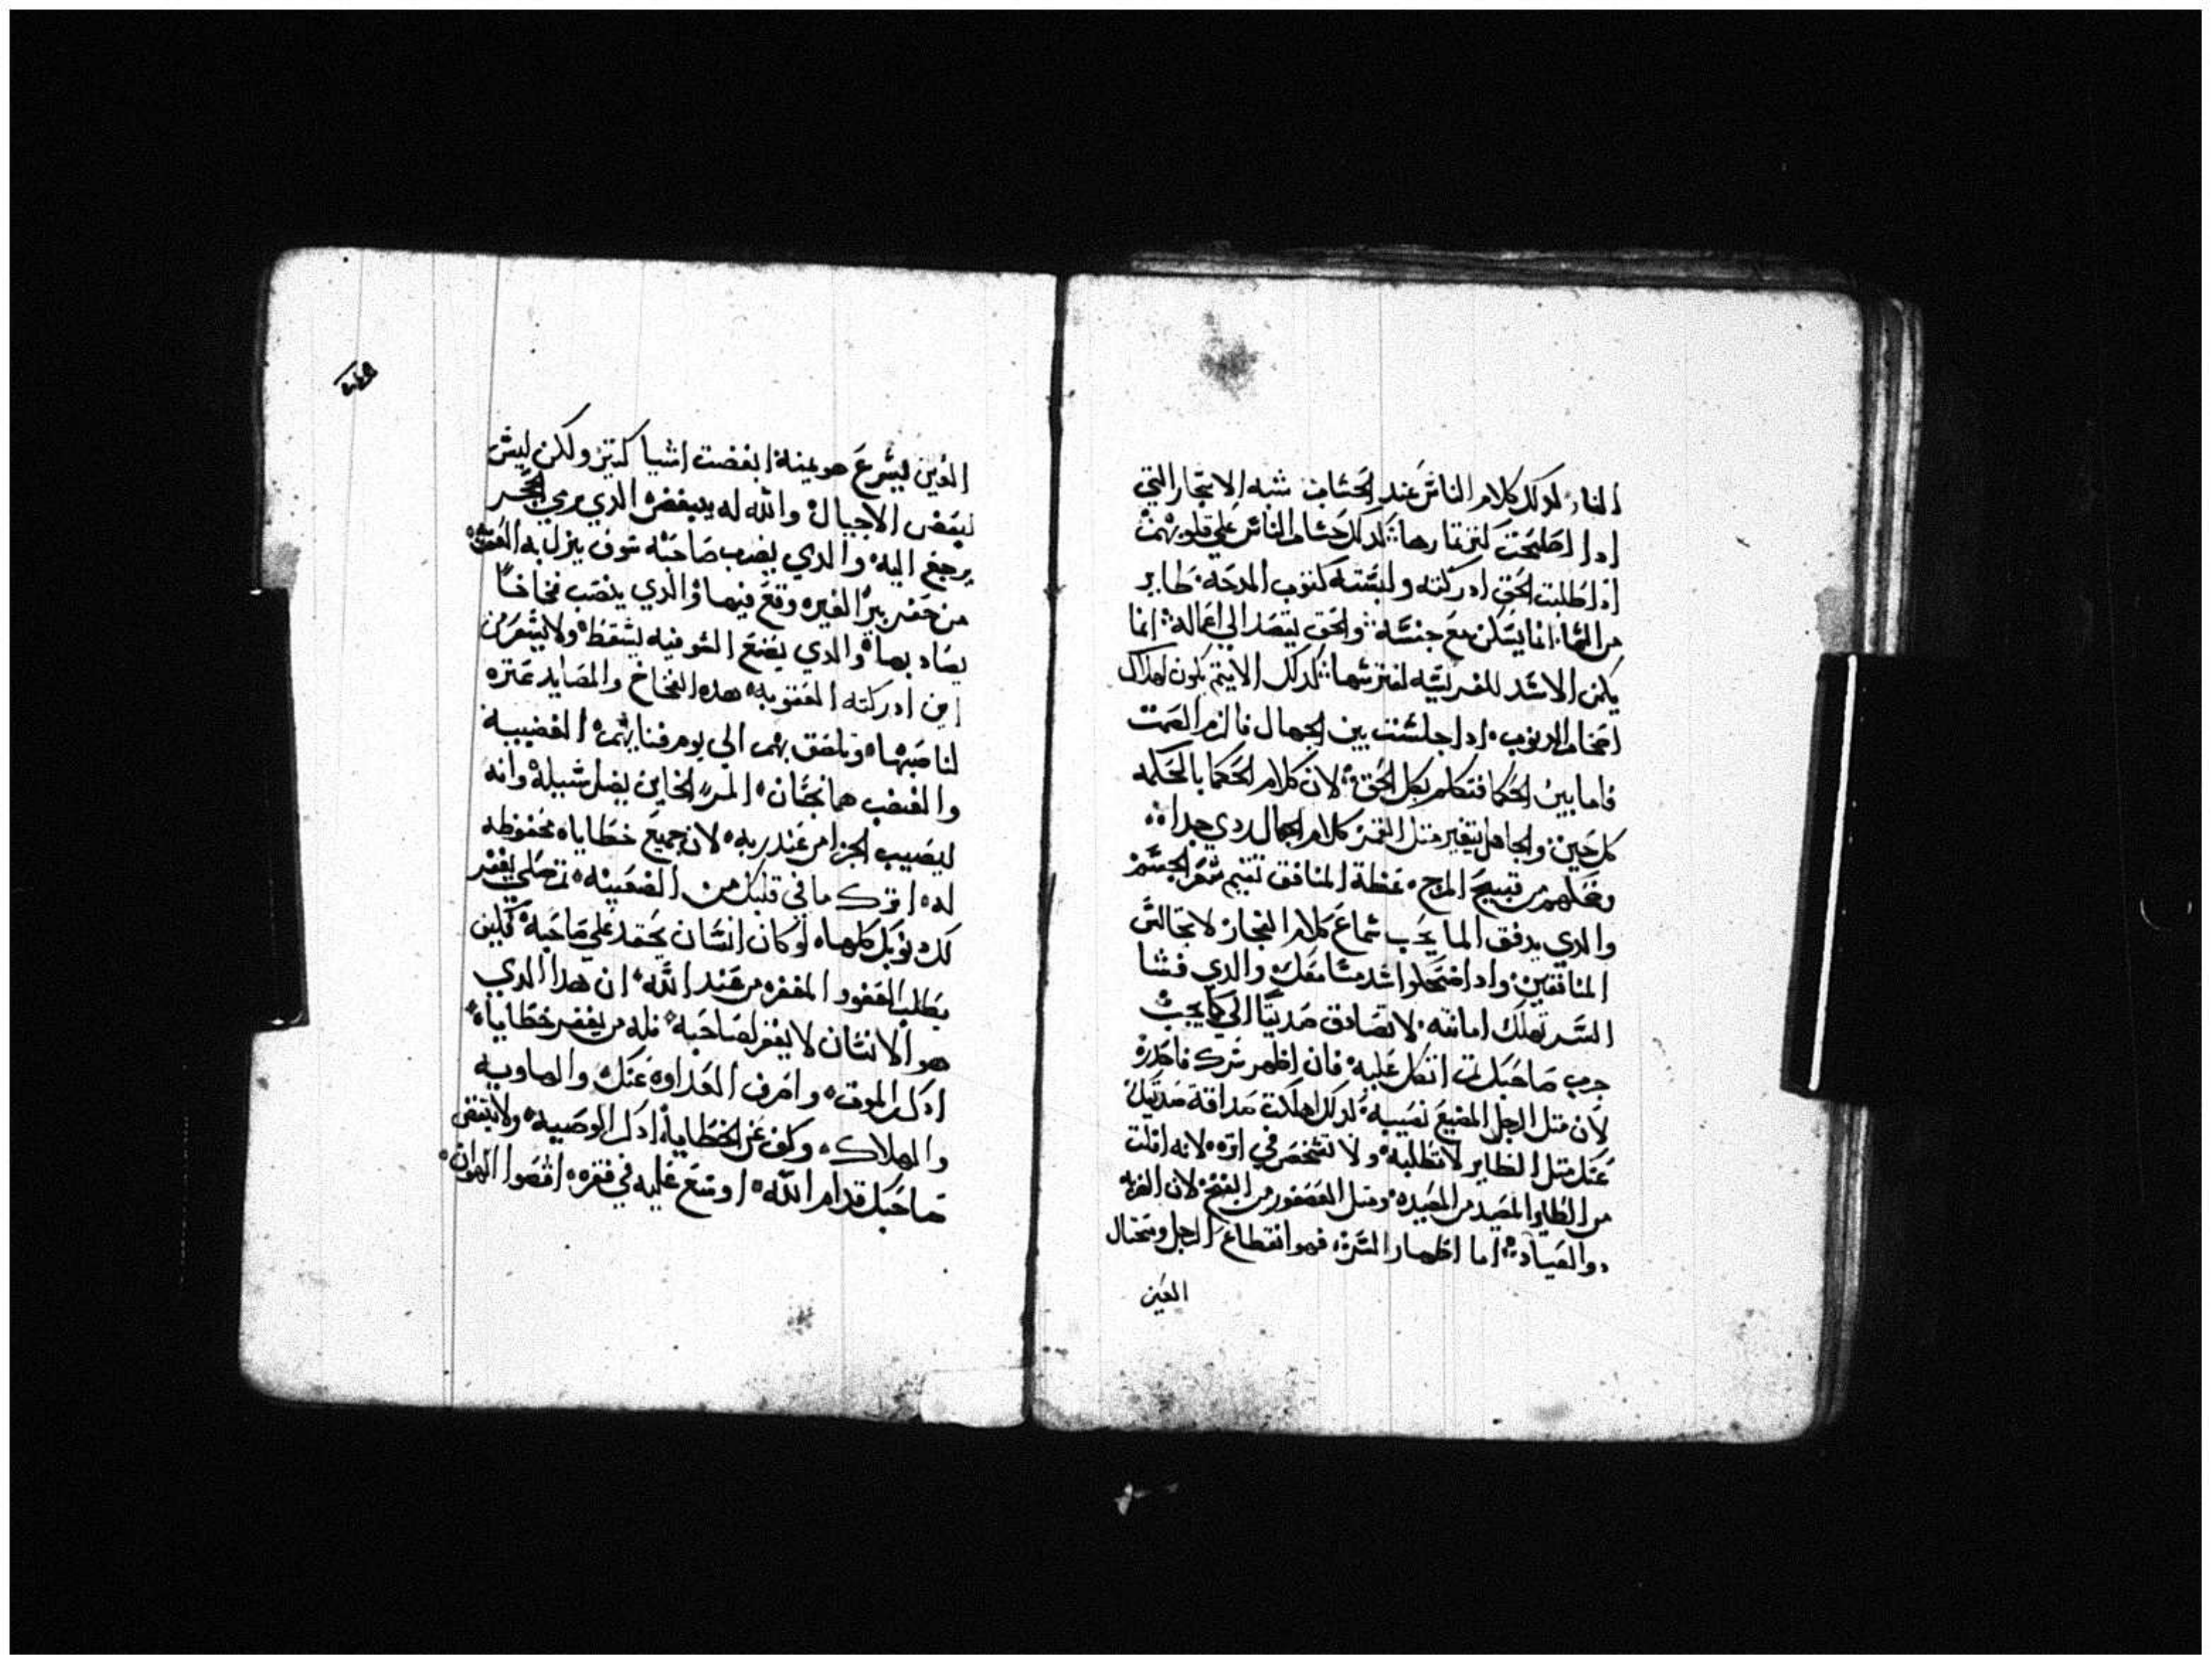 النار، لدلك كلام الناس عند الحساب شبه الاشجار التي
ادا اصلحت كتر تمارها: لدلك حساب الناس علي قلوبهم
ادا طلبت الحق ادركته ولبسته كتوب المدحه. طاير
من السما انما يسكن مع جنسه: والحق يقصد الي اعماله: انما
يكمن الاسد للفريسه لفترسها: لدلك الايتم يكون لهلاك
اصحاب الدنوب. ادا جلست بين الجهال فالزم الصمت
فاما بين الحكما فتكلم بكل الحق. لان كلام الحكما بالحكمه
كل حين. والجاهل يتغير متل القمر كلام الجهال ردي جدا
وضحكهم من قبيح المرح. عظة المنافق تقيم شعر الجسم
والدي يدفق الما يحب سماع كلام الفجار. لا تجالس
المنافقين. وادا اضمحلوا اسد مسامعك والدي فشا
السر تهلك امانته. لا تصادق صديقا الي كما يجب
جرب صاحبك تم اتكل عليه. فان اظهر سرك فاحدره
لان متل الرجل المضيع نصيبه. لدلك اهلكت صداقة صديقك
عنك متل الطاير لا تطلبه. ولا تشخص في اتره. لانه افلت
من الظبي المصيد من المصيده ومتل العصفور من الفخ. لان الضربه
دوا الصياد. اما اظهار السر. فهو انقطاع الرجل ومحتال
العين
العين ليسرع هو عينه. ابغضت اشيا كتير ولكن ليس
ليبغض الاجيال. والله له يبغض. الدي يرمي الحجر
يرجع اليه. والدي يضرب صاحبه سوف ينزل به الغش
من حفر بير الغيره وقع فيها. والدي ينصب فخاخا
يصاد بها. والدي يصنع السو فيه يسقط. ولا يشعر من
اين ادركته العقوبه. هده الفخاخ والمصايد عتره
لناصبها. وتلصق بهم الي يوم فنايهم. الغضيبه
والغضب هما نجسان. المر الخاين يضل سبيله وانه
ليصيب الجزا من عند ربه. لان جميع خطاياه محفوظه
له. اترك ما في قلبك من الضغينه. تم صلي يغفر
لك دنوبك كلها. لو كان انسان يحقد علي صاحبه كيف
يطلب العفو والمغفره من عند الله. ان هدا الدي
هو الانسان لا يغفر لصاحبه. فله من يغفر خطاياه
ادكر الموت. واصرف العداوه عنك. والهاويه
والهلاك. وكف عن الخطايا. ادكر الوصيه. ولا تبغض
صاحبك قدام الله. اوسع عليه في فقره. اقصوا الهوان.